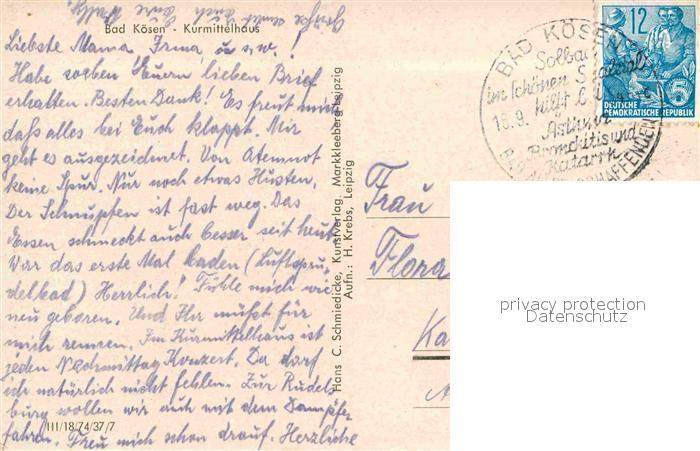 Bad Kösen - Kurmittelhaus
Liebste Mama, Irma, u.s.w.!
Habe soeben Euern lieben Brief
erhalten. Besten Dank! Es freut mich
daß alles bei Euch klappt. Mir
geht es ausgezeichnet. Von Atemnot
keine Spur. Nur noch etwas Husten.
Der Schnupfen ist fast weg. Das
Essen schmeckt auch besser seit heut.
War das erste Mal baden (Luftspru-
delbad) Herrlich! Fühle mich wie
neu geboren. Und Ihr müßt für
mich rennen. Im Kurmittelhaus ist
jeden Nachmittag Konzert. Da darf
ich natürlich nicht fehlen. Zur Rudels-
burg wollen wir auch mit dem Dampfer
fahren. Freu mich schon drauf. Herzliche
Grüße sendet Euch
Eure
III/18/74/37/7
Hans C. Schmiedicke, Kunstverlag, Markkleeberg-Leipzig
Aufn.: H. Krebs, Leipzig
BAD KÖSEN
Solbad
im schönen Saaletal
hilft b
16.9.
Asthma
Bronchitis und
Katarrh
SCHAFFENDEN
12
5
DEUTSCHE
DEMOKRATISCHE REPUBLIK
Frau
Flora
Ka
privacy protection
Datenschutz